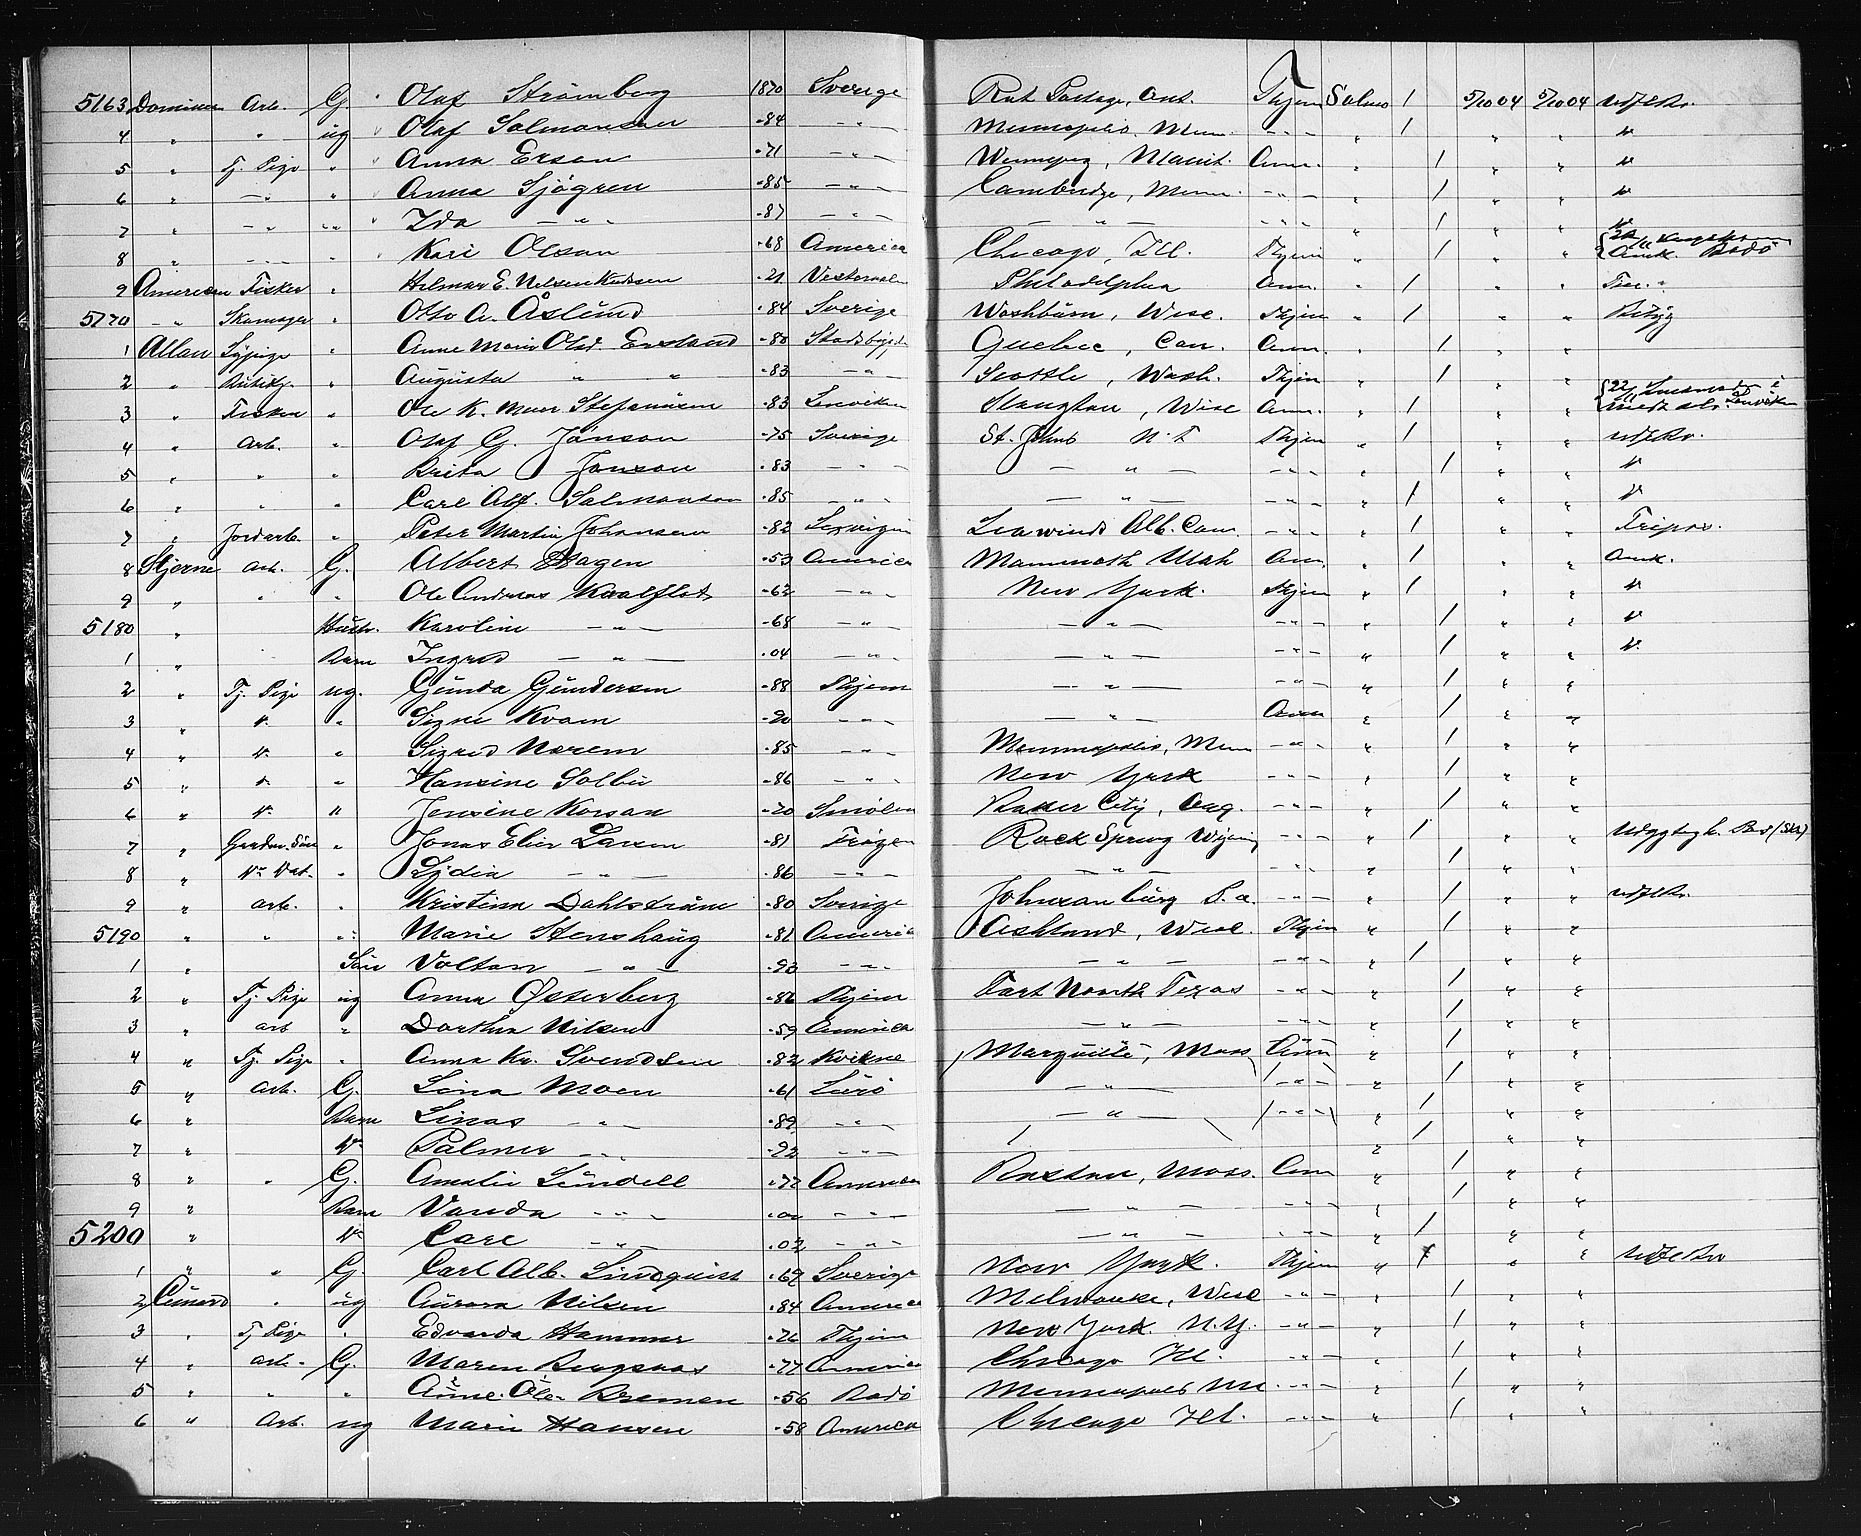 5163 Dominion Arb. G. Olaf Strömberg 1870 Sverige Rat Portage, Ont. Thjem Salmo 1 5/10 04 5/10 04
4 " " ug Olaf Salmonsen -84 - " - Minneapolis, Minn. - " - " 1 " "
5 " Tj. Pige " Anna Erson -71 - " - Winnipeg, Manit. Am. " 1 " "
6 " - " " Anna Sjögren -85 - " - Cambridge, Minn. - " - " 1 " "
7 " - " " Ida - " - -87 - " - - " - - " - " 1 " "
8 " - " Kari Olsen -68 America Chicago, Ill. Thjem " 1 " " Amk. Bodö
9 American Fisker " Hilmar E. Nilsen Knudsen -21 Vesteraalen Philadelphia Am. " 1 " "
5170 - " Skomager " Otto A. Åslund -84 Sverige Washburn, Wisc. Thjem " 1 " "
1 Allan Sypige " Anne Marie Olsd. Ersland -80 Stadsbygd Quebec, Can. Am. " 1 " "
2 " " Augusta " " -83 - " - Seattle, Wash. Thjem " 1 " "
3 " Fisker " Ole K. Meier Stefanusen -83 Lenviken Stoughton, Wisc Am. " 1 " "
4 " Arb. " Olaf G. Jonson -75 Sverige St. Johns N. F. Thjem " 1 " "
5 " " " Brita Jonson -83 - " - - " - - " - " 1 " "
6 " " " Carl Alf. Salmonson -85 - " - - " - - " - " 1 " "
7 " Jordarb. " Peter Martin Johansen -82 Alb. Can. - " - " 1 " "
8 Stjerne Arb. G. Albert Hagen -53 America Mammoth Utah Am. " 1 " " Amk.
9 " " " Ole Andreas Kvalflot -62 - " - New York. Thjem " 1 " "
5180 " Hustr. Karoline - " - -68 - " - - " - - " - " 1 " "
1 " Barn Ingrid - " - -04 - " - - " - - " - " 1 " "
2 " Tj. Pige ug. Gunda Gundersen -88 Thjem - " - - " - " 1 " "
3 " " " Signe Kvam -20 - " - - " - Am " 1 " "
4 " " " Sigrid Norem -85 - " - Minneapolis, Minn - " - " 1 " "
5 " " " Hansine Solbu -86 - " - New York - " - " 1 " "
6 " " " Jensine Korsan -70 Smölen Baker City, Oreg. - " - " 1 " "
7 " Gaardm. Sön " Jonas Elier Larsen -81 Fröyen Rock Spring Wyoming - " - " 1 " "
8 " Dat. " Lydia - " - -86 - " - - " - - " - " 1 " "
9 " Arb. " Kristina Dahlström -80 Sverige Johnsonburg P.a. - " - " 1 " "
5190 " " " Marie Stenshaug -81 America Ashland, Wisc. Thjem " 1 " "
1 " Sön Volton - " - -93 - " - - " - - " - " 1 " "
2 " Tj. Pige ug Anna Østerberg -82 Thjem Fort Worth Texas - " - " 1 " "
3 " Arb " Dorthea Nilsen -59 America - " - - " - " 1 " "
4 " Tj. Pige " Anna Kr. Svendsen -82 Kvikne Marquitte, Mass Am " 1 " "
5 " Arb. G. Lina Moen -61 Lurö - " - - " - " 1 " "
6 " Barn Linas - " - -89 - " - - " - - " - " 1 " "
7 " " Palmer - " - -92 - " - " 1 " "
8 " " G. Amalie Lundell -72 America Boston, Mass. Am " 1 " "
9 " Barn Vanda - " - - " - - " - - " - " 1 " "
5200 " " Carl - " - -02 - " - - " - - " - " 1 " "
1 " " G. Carl Alb. Lindquist -69 Sverige New York. Thjem " 1 " "
2 Cunard " ug Aurora Nilsen -84 America Milwauke, Wisc - " - " 1 " "
3 " Tj Pige " Edvarda Hammer -76 Thjem New York. N.Y. - " - " 1 " "
4 " Arb. G. Maren Bergsnes -77 America Chicago Ill. - " - " 1 " "
5 " " " Anne Ols. Bremen -56 Bodö Minneapolis - " - " 1 " "
6 " Arb. ug Marie Hansen -58 America Chicago Ill. - " - " 1 " "